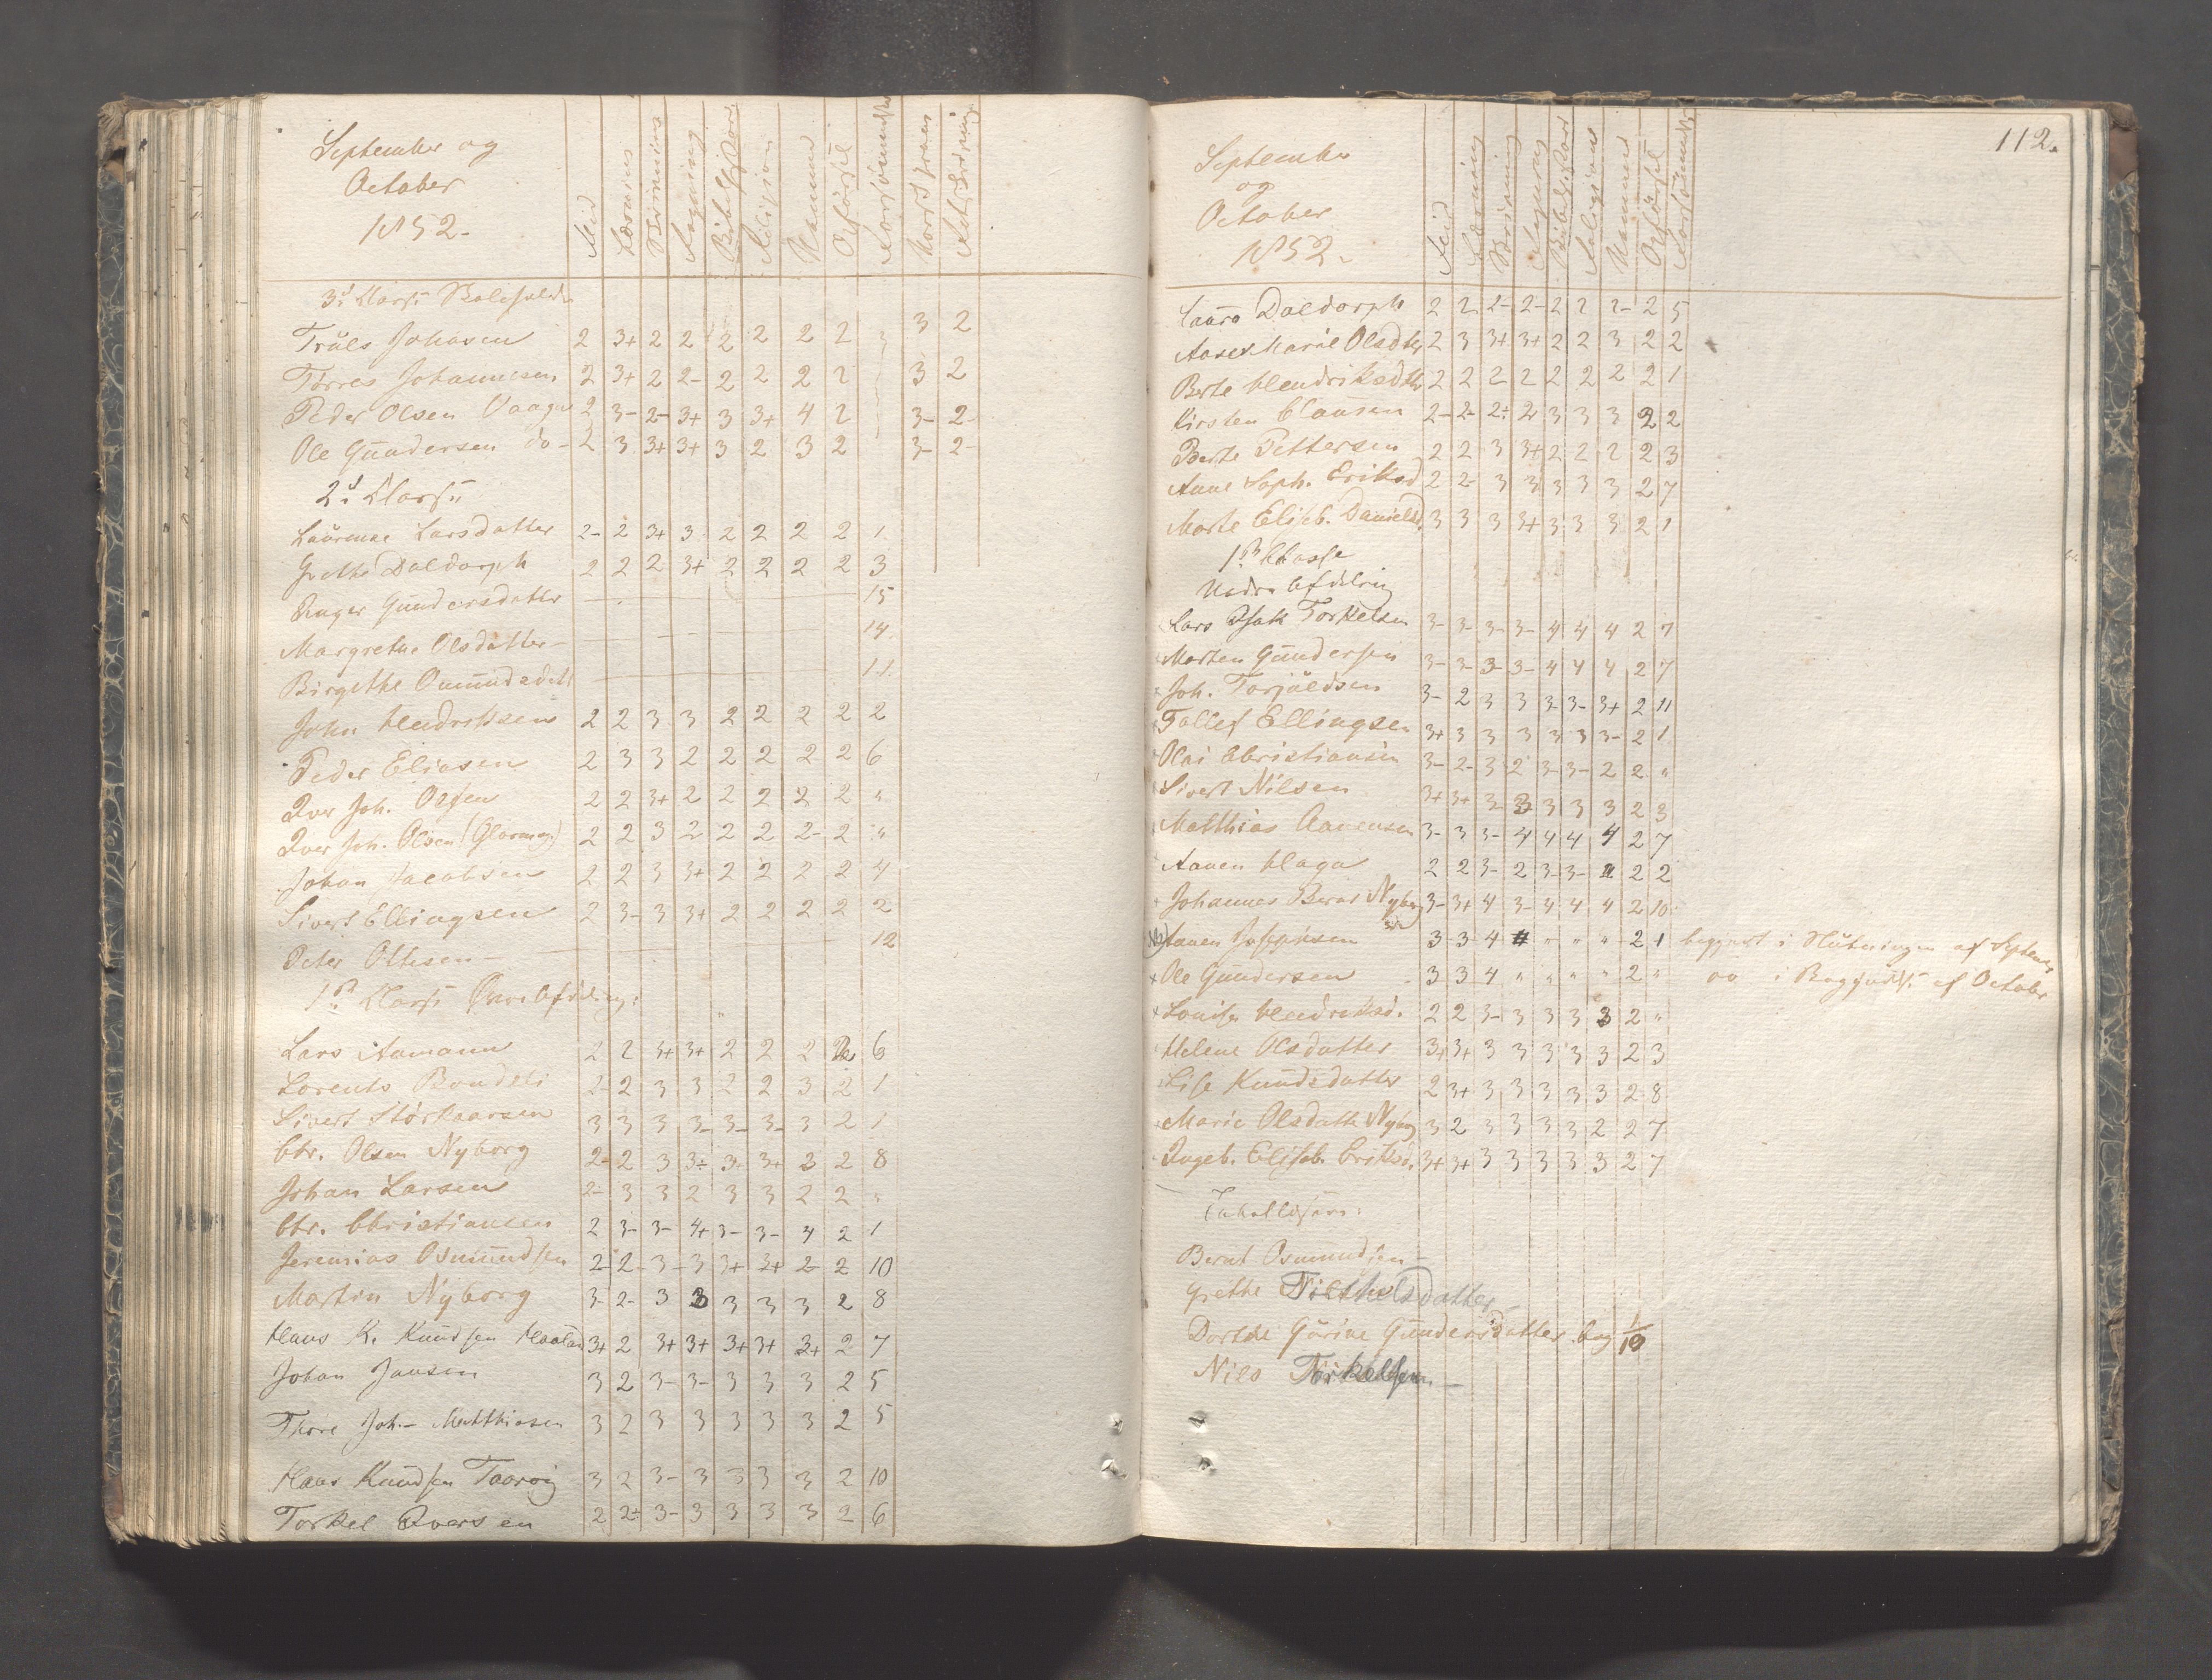 September og
October
1852.
Flid Læsning Skrivning Regning Bibelhistorie Religion Hukommelse Opførsel Forsømmelser Norsk
3die Classe
Truls Johnsen 2 3+ 2 2 2 2 2 2 3 2
Torres Johannesen 2 3+ 2 2- 2 2 2 2 3 2
Peder Olsen Vaage 2 3- 2- 3+ 3 3+ 4 2 3- 2-
Ole Gundersen do- 2 3 3+ 3+ 3 2 3 2 3- 2-
2d Classe
Laurense Larsdatter 2- 2 3+ 3 2 2 2 2 1
Grethe Daldorph 2 2 2 3+ 2 2 2 2 3
Inger Gundersdatter 15
Margrethe Olsdatter- 14
Birgethe Omundsdatt 11
John Hendriksen 2 2 3 3 2 2 2 2 2
Peder Eliasen 2 3 3 2 2 2 2 2 6
Iver Joh. Olsen 2 2 3+ 2 2 2 2 2 "
Iver Joh. Olsen 2 2 3 2 2 2 2- 2 "
Johan Jacobsen 2 2 3 3+ 2 2 2 2 4
Sivert Ellingsen 2 3- 3 3+ 2 2 2 2 2
Peter Ottesen- 12
1ste Classe Øvre Afdeling:
Lars Aamann 2 2 3+ 3+ 2 2 2 2 6
Lorents Bondeli 2- 2 3 3 2 2 3 2 1
Sivert Størkaarsen 3 3 3 3- 3- 3- 3 2 1
Chr. Olsen Nyborg 2- 2 3 3÷ 3- 3+ 2 2 8
Johan Larsen 2- 3 3 2 3 3 2 2 "
Chr. Christiansen 2 3- 3- 4+ 3- 3- 4 2 1
Jeremias Osmundsen 2- 2- 3- 3 3+ 3+ 2- 2 10
Martin Nyborg 3- 2- 3 3 3 3 3 2 8
Hans K. Knudsen Haaland 3+ 2 3+ 3+ 3+ 3+ 3+ 2 7
Johan Jansen 3 2 3- 3- 3 3 3 2 5
Thore Joh.- Matthiasen 3 2 3 3 3 3 3 2 5
Hans Knudsen 3 2 3- 3 3 3 3 2 10
Torkel Iversen 2 2÷ 3- 3 3 3 3 2 6
112.
September
og
October
1852.
Flid Læsning Skrivning Regning Bibelhistorie Religion Hukommelse Opførsel Forsømmelser
Laura Daldorph 2 2 2- 2- 2 2 2- 2 5
Aase Marie Olsdtter 2 3 3+ 3+ 2 2 3 2 2
Berte Hendriksdtr 2 2 2- 2 2 2 2 2 1
Kirsten Clausen 2- 2- 2÷ 2 3 3 3 2 2
Berte Pettersen 2 2 3 3+ 2 2 2 2 3
Anne Soph. Eriksd 2 2- 3 3 3 3 3 2 7
Marte Elisab. Danielsd. 3 3 3 3+ 3 3 3 2 1
1ste Classe
Nedre Afdeling
Lars Isak Torkelsen 3- 3- 3- 3- 4 4 4 2 7
Morten Gundersen 3- 3- 3- 3- 4 4 4 2 7
Joh. Torjuldsen 3- 2 3 3 3- 3- 3+ 2 11
Tollef Ellingsen 3+ 3 3 3 3 3 3- 2 1
Olai Christiansen 3- 2- 3 2 3- 3- 2 2 "
Sivert Nilsen 3+ 3+ 3- 3 3 3 3 2 3
Matthias Aanensen 3- 3 3- 4 4 4 4 2 7
Aanen Haga 2 2 3- 2 3- 3- 2 2 2
Johannes Bernt Nyborg 3- 3+ 4 3- 4 4 4 2 10
Aanen Josephsen 3- 3- 4 " " " 2 1 begyndt i Slutningen af September
Ole Gundersen 3 3 4 " " " " 2 " do i Begyndelse af October
Louise Hendriksd. 2 2 3- 3 3 3 3 2 "
Helene Olsdatter 3+ 3+ 3 3 3 3 3 2 3
Lise Knudsdatter 2 3+ 3 3 3 3 3 2 8
Marie Olsdatter Nyborg 3 2 3 3 3 3 2 2 7
Ingeb. Elisab. Eriksd. 3+ 3+ 3 3 3 3 3 2 7
Bernt Osmundsen-
Grethe Thorkelsdatter-
Dorthe Gurine Gundersdatter beg 1/10
Nils Torkelsen-